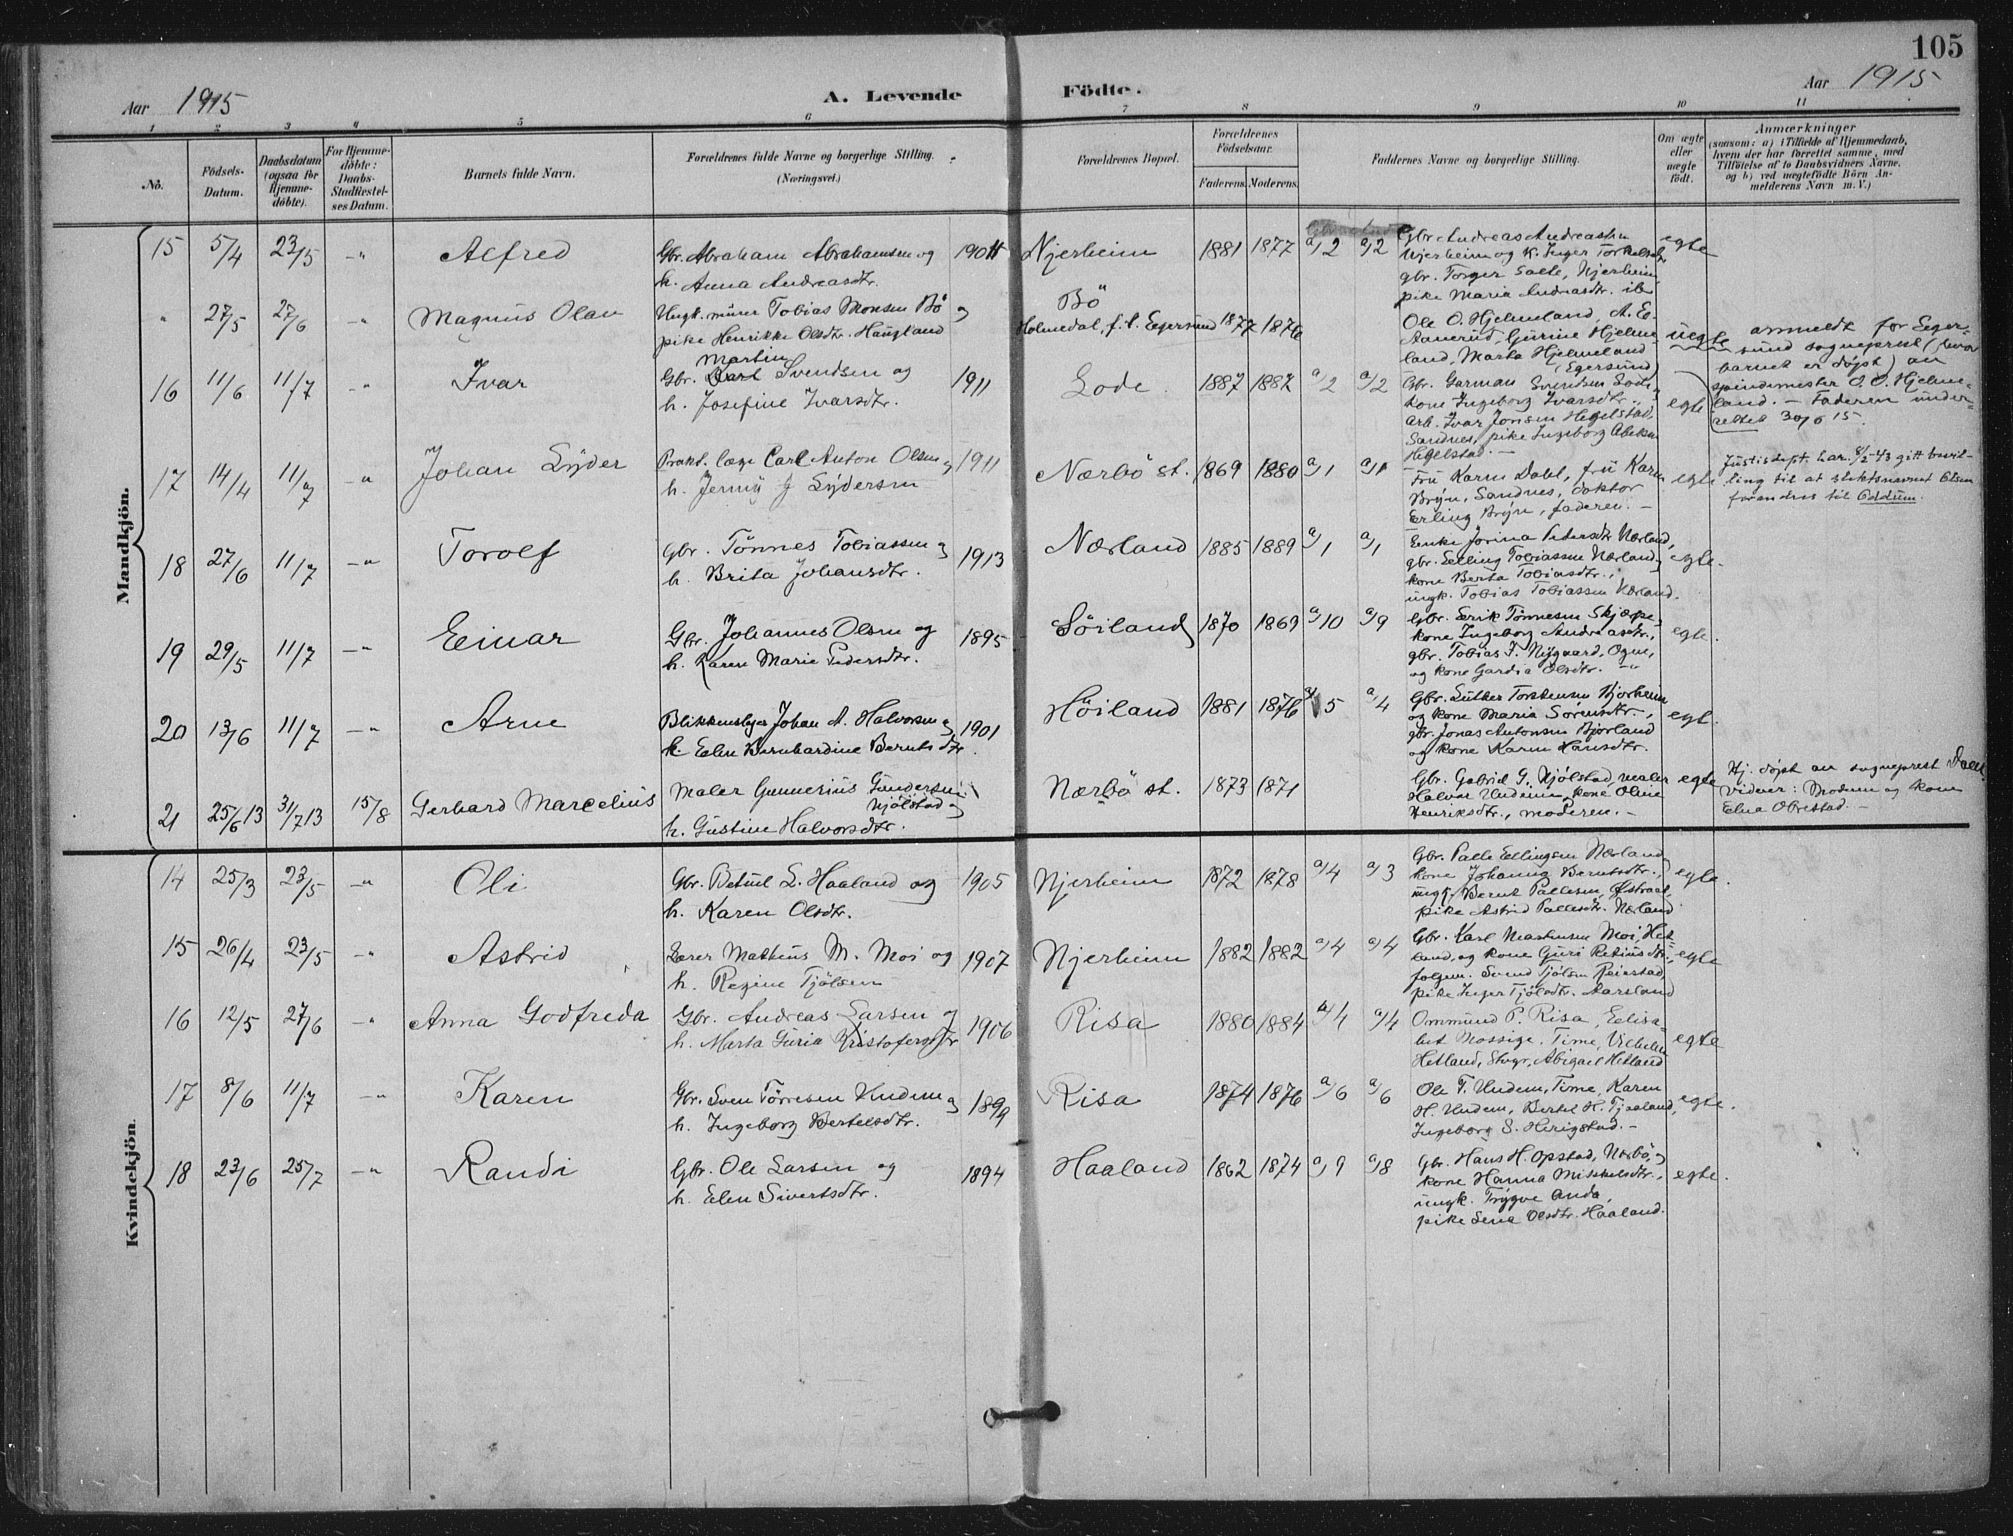 105
Aar 1915
A. Levende Födte.
Aar 1915
1 2 3 4 5 6 7 8 9 10 11
No.
Födsels-Datum.
Daabsdatum (ogsaa for Hjemme-döbte).
For Hjemme-döbte: Daabs-Stadfæstel-ses Datum.
Barnets fulde Navn.
Forældrenes fulde Navne og borgerlige Stilling.
(Næringsvei.)
Forældrenes Bopæl.
Forældrenes Födselsaar.
Faderens. Moderens.
Faddernes Navne og borgerlige Stilling.
Om ægte eller uægte födt.
Anmærkninger
(saasom: a) i Tilfælde af Hjemmedaab, hvem der har forrettet samme, med Tilföielse af to Daabsvidners Navne, og b) ved uægtefödte Börn An-melderens Navn m. V.)
Mandkjön.
15 5/4 23/5 -"- Alfred
Gbr. Abraham Abrahamsen og
h. Anna Andreasdtr.
Njerheim 1881 1877 a/2 a/2
Gbr Andreas Andreassen
Njerheim og k. Inger Torkelsdtr
gbr. Torger Salte, Njerheim
pike Maria Andreasdtr. ib.
egte
" 27/5 27/6 -"- Magnus Olav
Ungk. murer Tobias Monsen Bö og
pike Henrikke Olsdtr. Haugland
Bö
Holmedal, f. t. Egersund 1877 1876
Ole O. Hjelmeland, A. E.
Aanerud, Gurine Hjelme-
land, Marta Hjelmeland
(Egersund)
uegte
anmeldt for Eger-
sund sogneprest (hvor
barnet er döpt) av
spindemester O. O. Hjelme-
land. - Faderen under-
rettet 30/6 15.
16 11/6 11/7 " Ivar
Martin
Gbr. Karl Svendsen og
h. Josefine Ivarsdtr.
1911 Lode 1887 1887 a/2 a/2
Gbr. Garman Svendsen Lode,
kone Ingeborg Ivarsdtr.,
Arb. Ivar Jonsen Hegelstad,
Sandnes, pike Ingeborg
Hegelstad. -
egte
17 14/4 11/7 -"- Johan Lyder
Prakt. læge Carl Anton Olsen og
h. Jenny Lydersen
1911 Nærbö st. 1869 1880 a/1 a/1
Fru Karen Dahl, fru Karen
Bryn, Sandnes, doktor
Erling Bryn, faderen. -
egte
Justisdept. har 8/2 43 gitt bevil-
ling til at slektsnavnet Olsen
forandres til Oddum.
18 27/6 11/7 -"- Torolf
Gbr. Tönnes Tobiassen og
h. Brita Johansdtr.
1913 Nærland 1885 1889 a/1 a/1
Enke Jorina Pedersdtr Nærland,
gbr. Elling Tobiassen Nærland,
kone Berta Tobiasdtr.,
ungk. Tobias Tobiassen Nærland.
egte.
19 29/5 11/7 -"- Einar
Gbr. Johannes Olsen og
h. Karen Marie Pedersdtr.
1895 Söiland 1870 1869 a/10 a/9
Gbr. Erik Tönnesen Skjæpe,
kone Ingeborg Andreasdtr.,
gbr. Tobias T. Nygaard, Ogne,
og kone Gardia Olsdtr. -"
egte.
20 13/6 11/7 -"- Arne
Blikkenslager Johan A. Halvorsen og
h. Elen Bernhardine Berntsdtr.
1901 Höiland 1881 1876 5 a/4
Gbr. Luther Torstensen Bjorheim
og kone Maria Sörensdtr.,
gbr. Jonas Antonsen Bjorland
og kone Karen Hansdtr.
egte.
21 25/6 13 31/7 13 15/8 Gerhard Marcelius
Maler Gunnerius Gundersen
Njölstad og
h. Gustine Halvorsdtr.
Nærbö st. 1873 1871
Gbr. Gabriel G. Njölstad, maler
Halvor Undeim, kone Oline
Henriksdtr., moderen. -
egte
Hj. döpt av sogneprest Dahl
Vidner: Modum og kone
Elna Obrestad. -
Kvindekjön.
14 25/3 23/5 -"- Oli
Gbr. Betuel L. Haaland og
h. Karen Olsdtr.
1905 Njerheim 1872 1878 a/4 a/3
Gbr. Palle Ellingsen Nærland
kone Johanna Berntsdtr.,
ungk. Bernt Pallesen,
pike Astrid Pallesdtr. Nærland
egte.
15 26/4 23/5 -"- Astrid
Lærer Matheus M. Moi og
h. Regine Tjölsen
1907 Njerheim 1882 1882 a/4 a/4
Gbr. Karl Matheusen Moi, Het-
land, og kone Guri Retiusdtr.,
folgem. Svend Tjölsen Reiestad
pike Inger Tjölsdtr. Aarsland
egte
16 12/5 27/6 -"- Anna Godfreda
Gbr. Andreas Larsen og
h. Marta Guria Kristofersdtr
1906 Risa 1880 1884 a/4 a/4
Ommund P. Risa, Elisa-
bet Mossige, Time, Vilhelm
Hetland, Stvgr, Abigael Hetland
egte
17 8/6 11/7 -"- Karen
Gbr. Sven Törresen Undem og
h. Ingeborg Bertelsdtr.
1899 Risa 1874 1876 a/6 a/6
Ole T. Undem, Time, Karen
H. Undem, Bertel H. Tjaaland,
Ingeborg S. Herigstad. -
egte.
18 23/6 25/7 -"- Randi
Gbr. Ole Larsen og
h. Elen Sivertsdtr.
1894 Haaland 1862 1874 a/9 a/8
Gbr. Hans H. Opstad, Nærbö, og
kone Hanna Mikkelsdtr.,
ungk. Trygve Anda,
pike Lena Olsdtr. Haaland.
egte.